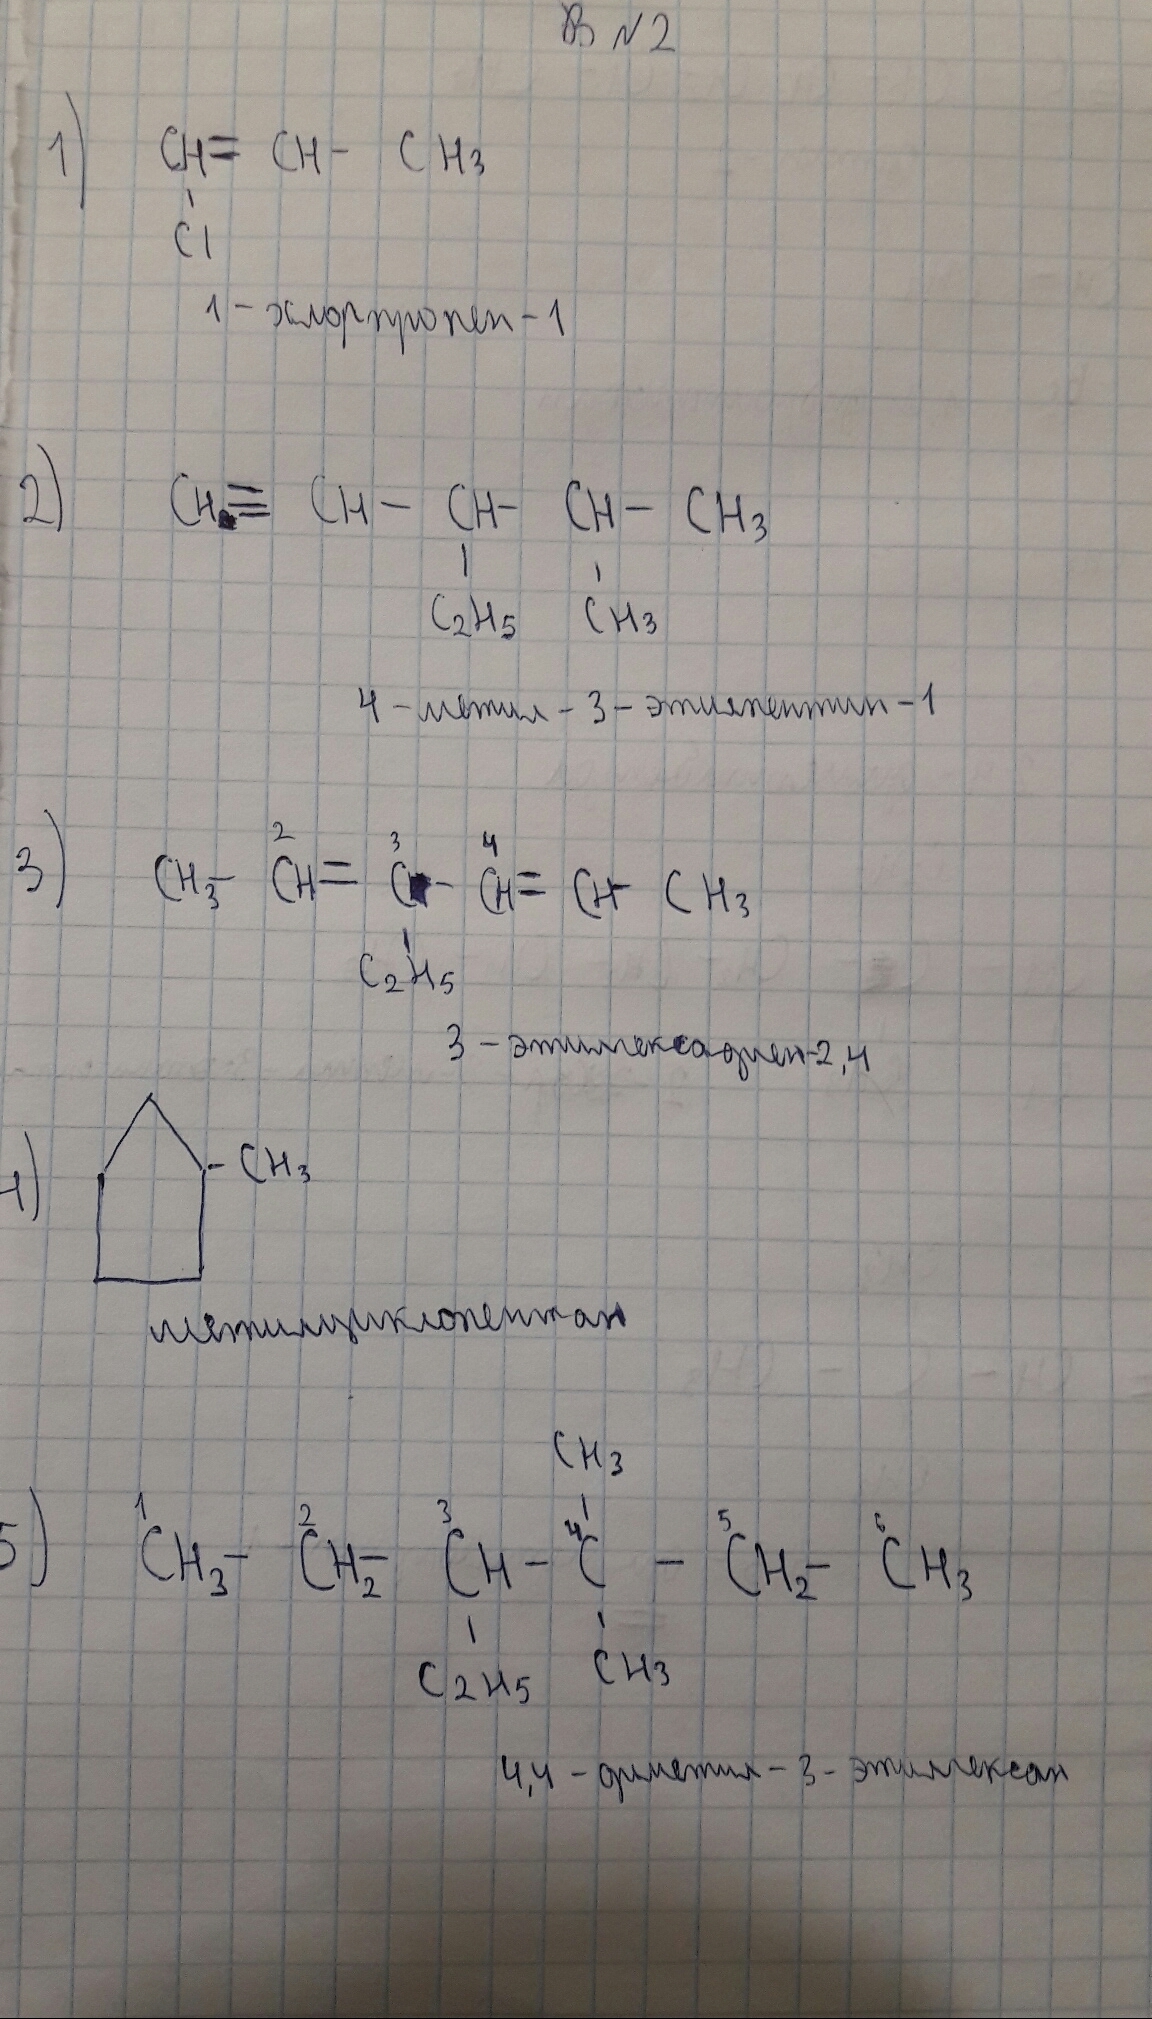 В №2
1) CH= CH- CH3
Cl
1-хлорпропен-1
2) CH≡ CH- CH- CH- CH3
C2H5 CH3
4-метил-3-этилпентин-1
2 3 4
3) CH3- CH= C- CH= CH- CH3
C2H5
3-этилгексадиен-2,4
4) -CH3
метилциклопентан
CH3
1 2 3 4 5 6
5) CH3- CH2- CH- C - CH2- CH3
C2H5 CH3
4,4-диметил-3-этилгексан